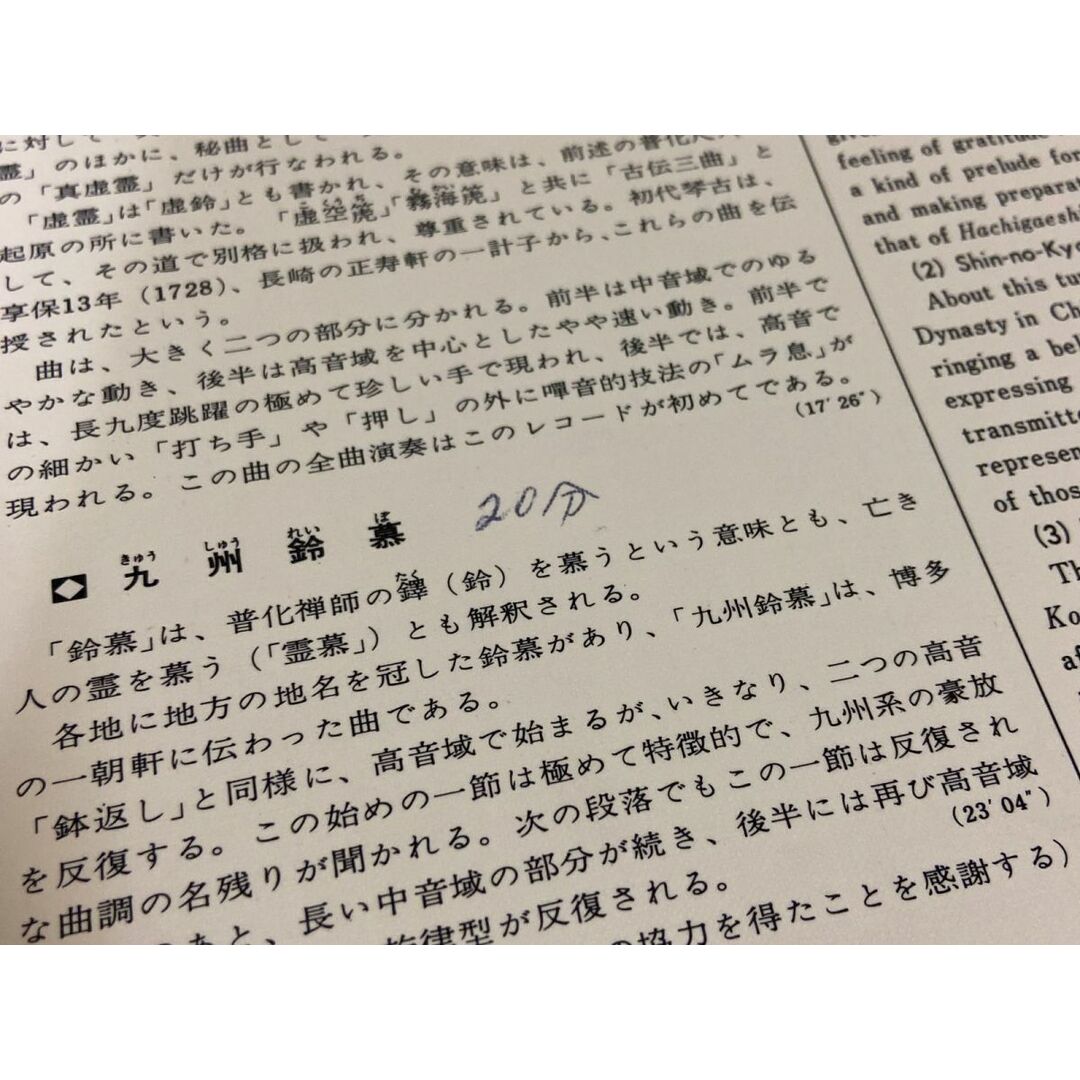 に対して、
霊」のほかに、秘曲として
の「真虚霊」だけが行なわれる。
「虚霊」は「虚鈴」とも書かれ、その意味は、前述の普化
起原の所に書いた。「虚空篪」「霧海篪」と共に「古伝三曲」と
して、その道で別格に扱われ、尊重されている。初代琴古は、
享保13年（1728）、長崎の正寿軒の一計子から、これらの曲を伝
授されたという。
曲は、大きく二つの部分に分かれる。前半は中音域でのゆる
やかな動き、後半は高音域を中心としたやや速い動き。前半で
は、長九度跳躍の極めて珍しい手で現われ、後半では、高音で
の細かい「打ち手」や「押し」の外に嘽音的技法の「ムラ息」が
現われる。この曲の全曲演奏はこのレコードが初めてである。
（17′26″）
九州鈴慕
きゅう しゅう れい ぼ
20分
「鈴慕」は、普化禅師の鐸（鈴）を慕うという意味とも、亡き
たく
人の霊を慕う（「霊慕」）とも解釈される。
各地に地方の地名を冠した鈴慕があり、「九州鈴慕」は、博多
の一朝軒に伝わった曲である。
「鉢返し」と同様に、高音域で始まるが、いきなり、二つの高音
を反復する。この始めの一節は極めて特徴的で、九州系の豪放
な曲調の名残りが聞かれる。次の段落でもこの一節は反復され
あと、長い中音域の部分が続き、後半には再び高音域
旋律型が反復される。
（23′04″）
の協力を得たことを感謝する）
feeling of gratitude
a kind of prelude for
and making preparat
that of Hachigaeshi
(2) Shin-no-Kyo
About this tu
Dynasty in Ch
ringing a bel
expressing
transmitte
represen
of thos
(3)
Th
Ko
af